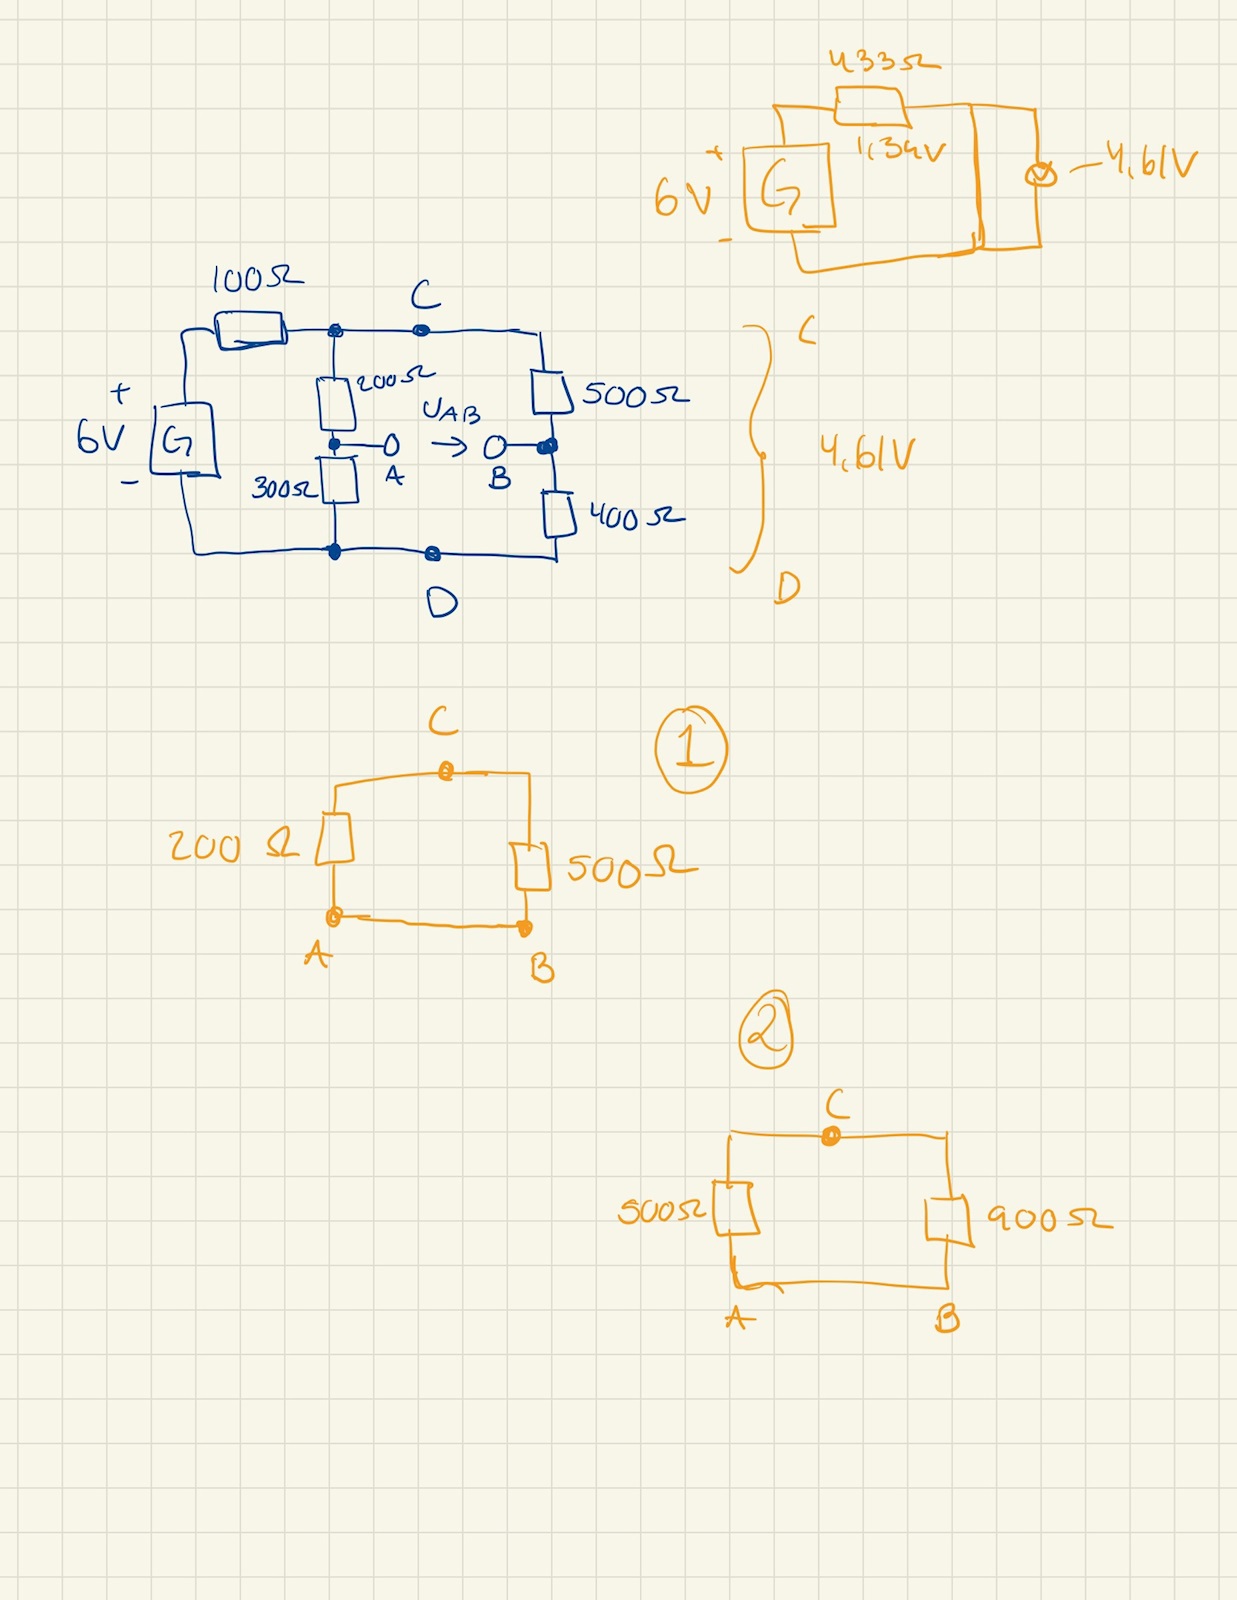 433Ω
1,39V
+
6V
G
-
4,61V
100Ω
C
+
6V
G
-
200Ω
UAB
500Ω
A
B
300Ω
400Ω
D
C
4,61V
D
C
1
200 Ω
500Ω
A
B
2
C
500Ω
900Ω
A
B